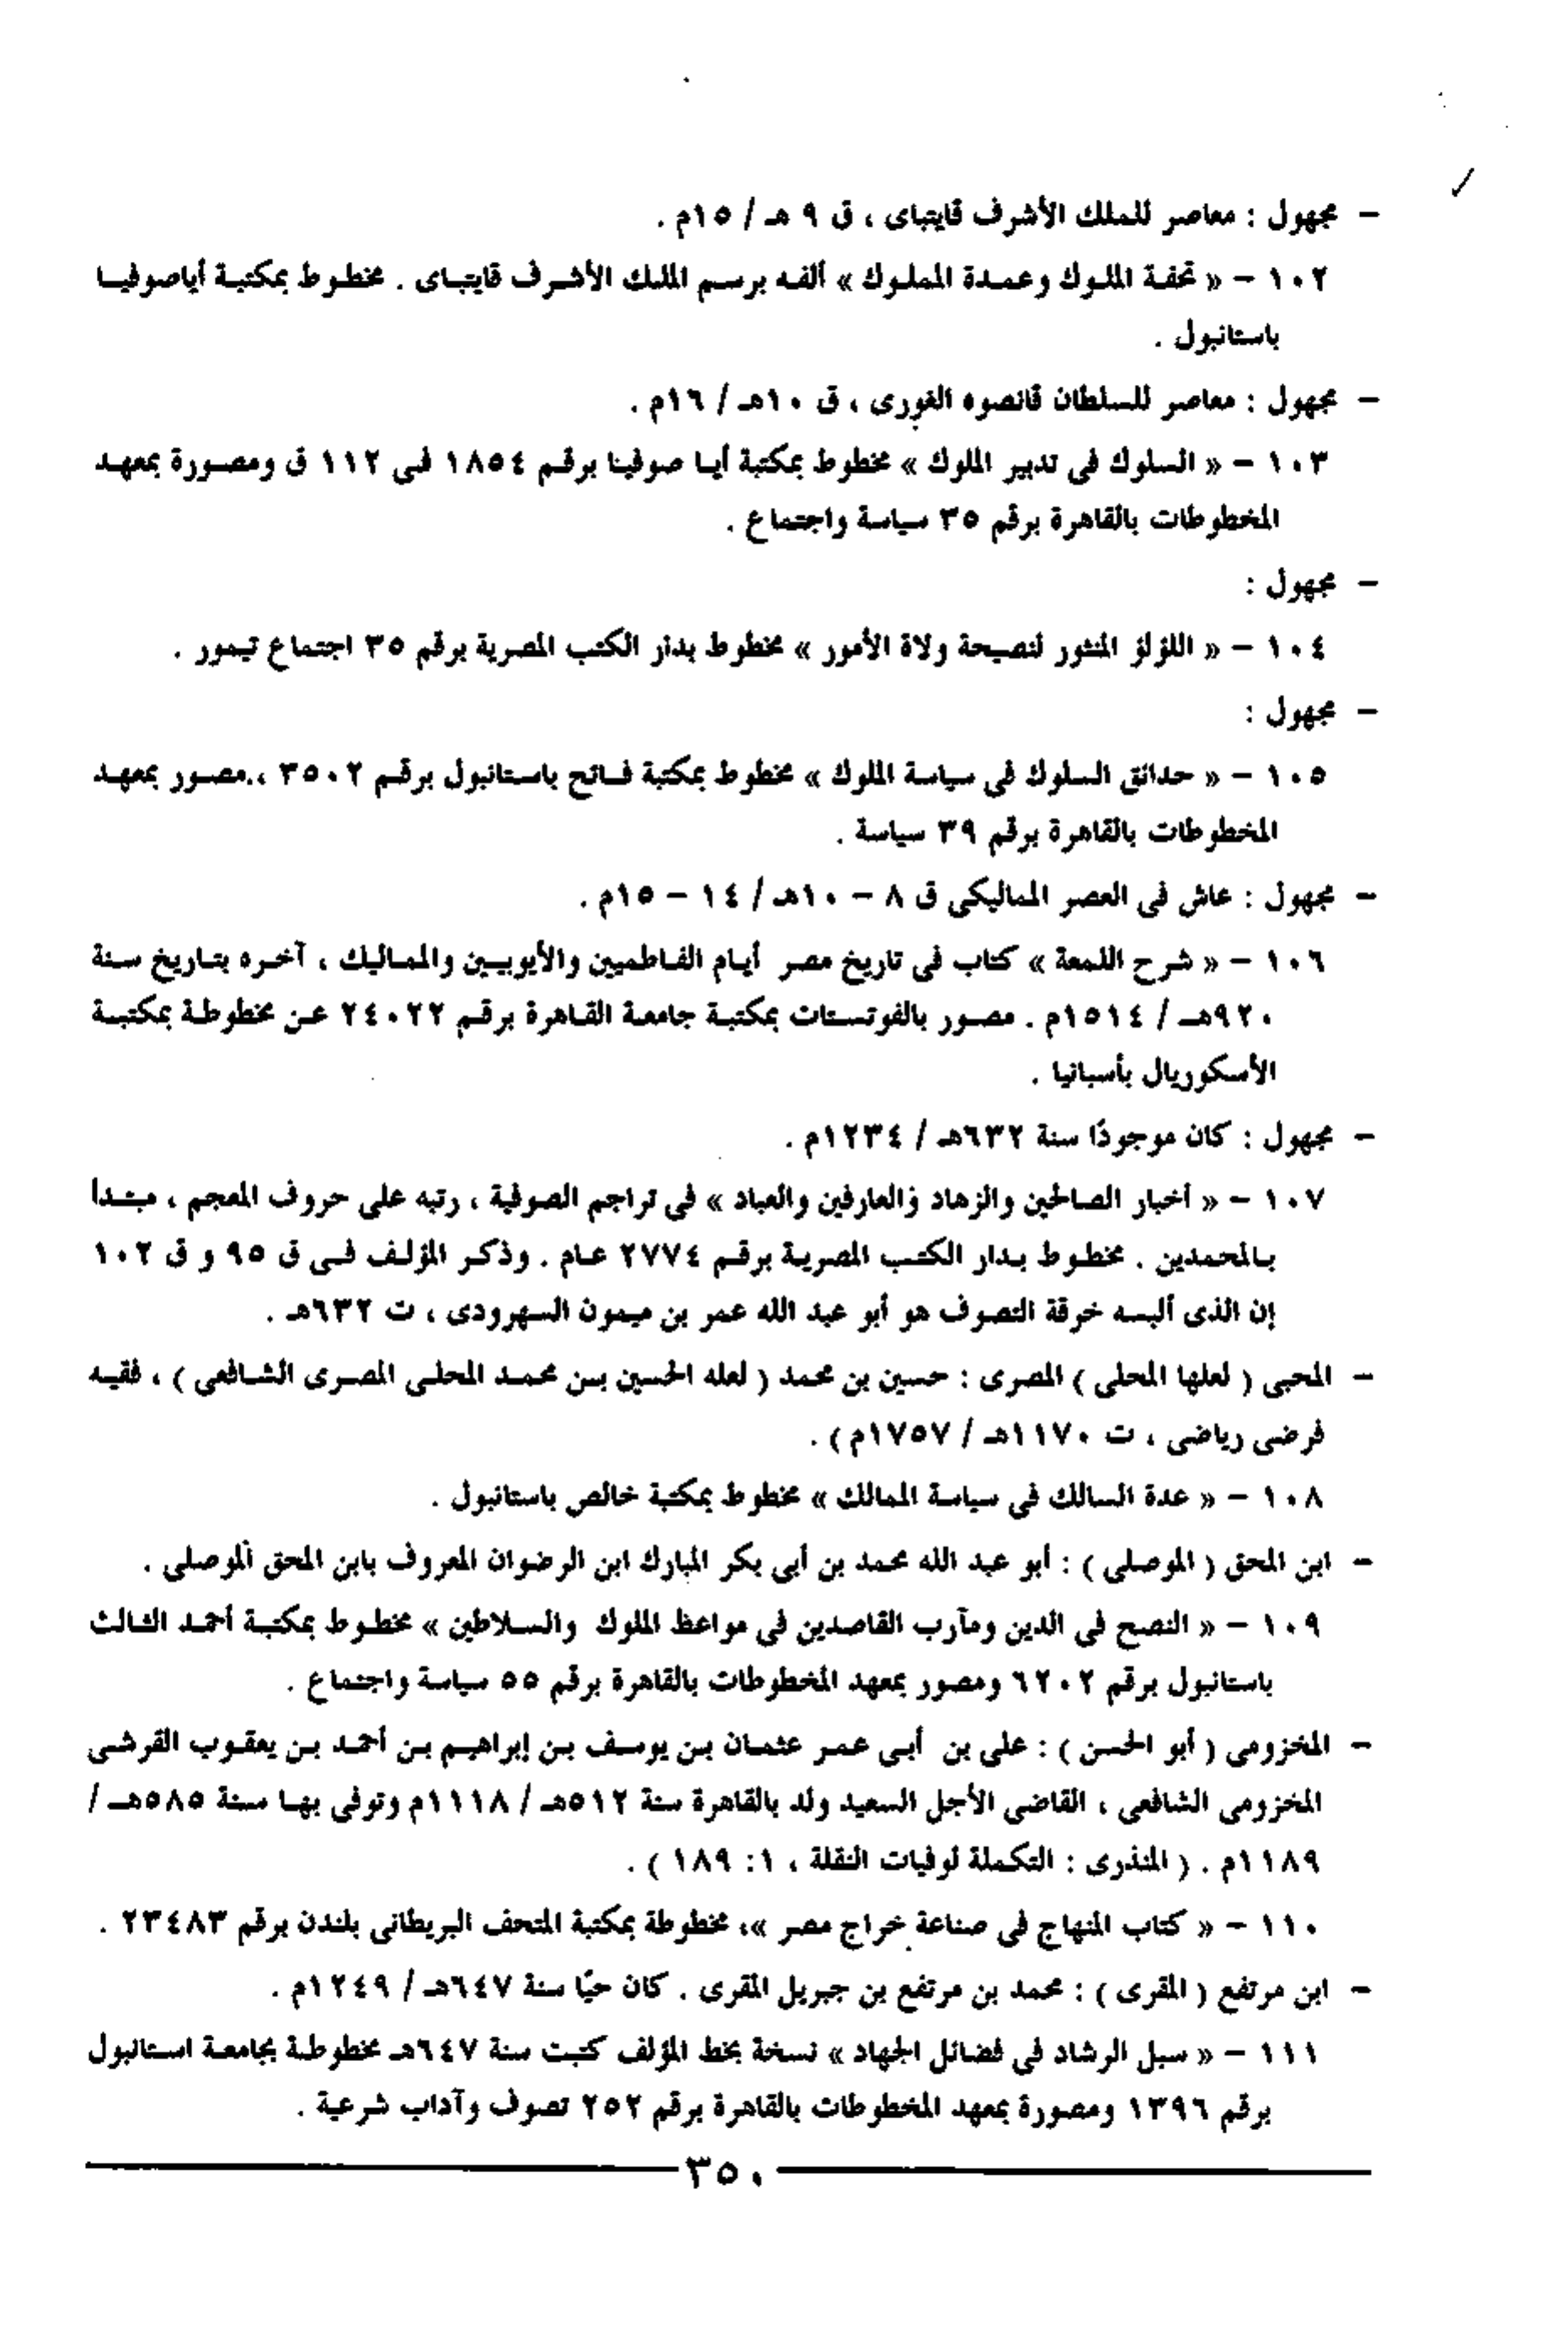 – مجهول : معاصر للملك الأشرف قايتباى ، ق ٩ هـ / ١٥م .
١٠٢ – « تحفة الملوك وعمدة المملوك » ألفه برسم الملك الأشرف قايتباى . مخطوط بمكتبة أياصوفيا
باستانبول .
– مجهول : معاصر للسلطان قانصوه الغورى ، ق ١٠هـ / ١٦م .
١٠٣ – « السلوك فى تدبير الملوك » مخطوط بمكتبة أيا صوفيا برقم ١٨٥٤ فى ١١٢ ق ومصورة بمعهد
المخطوطات بالقاهرة برقم ٣٥ سياسة واجتماع .
– مجهول :
١٠٤ – « اللؤلؤ المنثور لنصيحة ولاة الأمور » مخطوط بدار الكتب المصرية برقم ٣٥ اجتماع تيمور .
– مجهول :
١٠٥ – « حدائق السلوك فى سياسة الملوك » مخطوط بمكتبة فاتح باستانبول برقم ٣٥٠٢ ، مصور بمعهد
المخطوطات بالقاهرة برقم ٣٩ سياسة .
– مجهول : عاش فى العصر المماليكى ق ٨ – ١٠هـ / ١٤ – ١٥م .
١٠٦ – « شرح اللمعة » كتاب فى تاريخ مصر أيام الفاطميين والأيوبيين والمماليك ، آخره بتاريخ سنة
٩٢٠هـ / ١٥١٤م . مصور بالفوتستات بمكتبة جامعة القاهرة برقم ٢٤٠٢٢ عن مخطوطة بمكتبة
الأسكوريال بأسبانيا .
– مجهول : كان موجودًا سنة ٦٣٢هـ / ١٢٣٤م .
١٠٧ – « أخبار الصالحين والزهاد والعارفين والعباد » فى تراجم الصوفية ، رتبه على حروف المعجم ، مبتدا
بالمحمدين . مخطوط بدار الكتب المصرية برقم ٢٧٧٤ عام . وذكر المؤلف فى ق ٩٥ و ق ١٠٢
إن الذى ألبسه خرقة التصوف هو أبو عبد الله عمر بن ميمون السهرودى ، ت ٦٣٢هـ .
– المحبى ( لعلها المحلى ) المصرى : حسين بن محمد ( لعله الحسين بن محمد المحلى المصرى الشافعى ) ، فقيه
فرضى رياضى ، ت ١١٧٠هـ / ١٧٥٧م ) .
١٠٨ – « عدة السالك فى سياسة الممالك » مخطوط بمكتبة خالص باستانبول .
– ابن المحق ( الموصلى ) : أبو عبد الله محمد بن أبى بكر المبارك ابن الرضوان المعروف بابن المحق الموصلى .
١٠٩ – « النصح فى الدين ومآرب القاصدين فى مواعظ الملوك والسلاطين » مخطوط بمكتبة أحمد الثالث
باستانبول برقم ٦٢٠٢ ومصور بمعهد المخطوطات بالقاهرة برقم ٥٥ سياسة واجتماع .
– المخزومى ( أبو الحسن ) : على بن أبى عمر عثمان بن يوسف بن إبراهيم بن أحمد بن يعقوب القرشى
المخزومى الشافعى ، القاضى الأجل السعيد ولد بالقاهرة سنة ٥١٢هـ / ١١١٨م وتوفى بها سنة ٥٨٥هـ /
١١٨٩م . ( المنذرى : التكملة لوفيات النقلة ، ١: ١٨٩ ) .
١١٠ – « كتاب المنهاج فى صناعة خراج مصر »، مخطوطة بمكتبة المتحف البريطانى بلندن برقم ٢٣٤٨٣ .
– ابن مرتفع ( المقرى ) : محمد بن مرتفع بن جبريل المقرى . كان حيًا سنة ٦٤٧هـ / ١٢٤٩م .
١١١ – « سبل الرشاد فى فضائل الجهاد » نسخة بخط المؤلف كتبت سنة ٦٤٧هـ مخطوطة بجامعة استانبول
برقم ١٣٩٦ ومصورة بمعهد المخطوطات بالقاهرة برقم ٢٥٢ تصوف وآداب شرعية .
٣٥٠